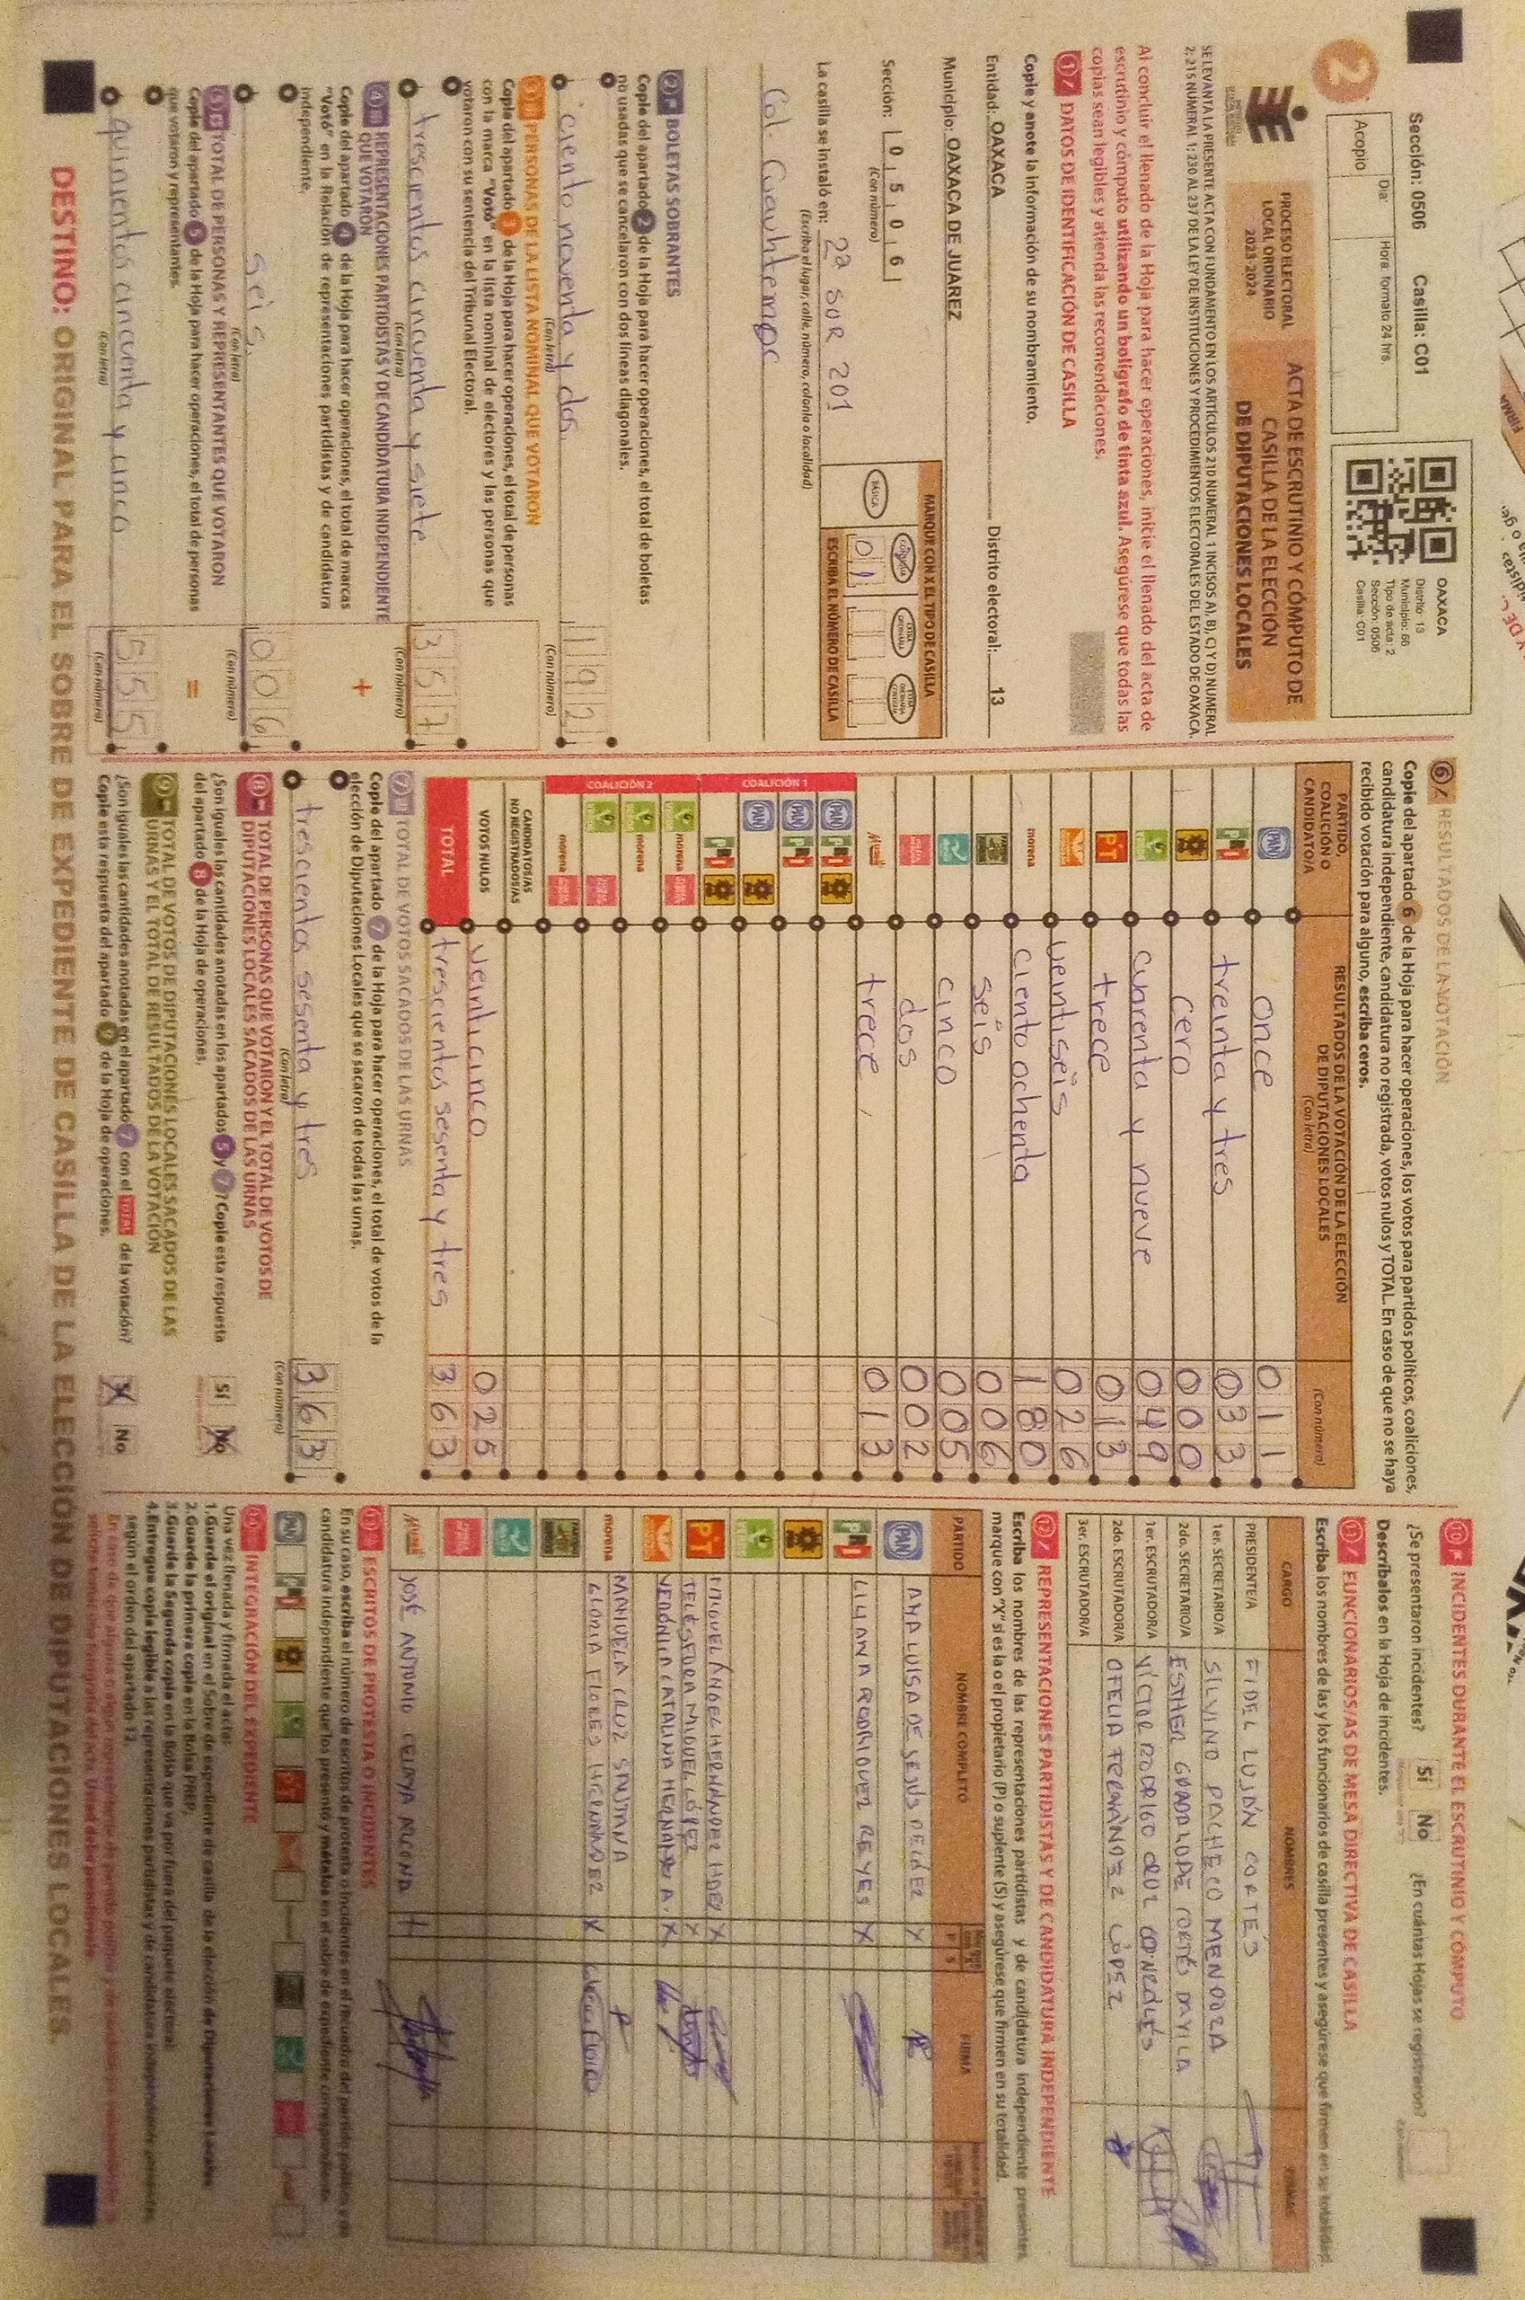 Sección: 0506 Casilla: C01
Día: Hora: formato 24 hrs.
Acopio
2
OAXACA
Distrito: 13
Municipio: 66
Tipo de acta: 2
Sección: 0506
Casilla: C01
PROCESO ELECTORAL
LOCAL ORDINARIO
2023-2024
ACTA DE ESCRUTINIO Y CÓMPUTO DE
CASILLA DE LA ELECCIÓN
DE DIPUTACIONES LOCALES
SE LEVANTA LA PRESENTE ACTA CON FUNDAMENTO EN LOS ARTÍCULOS 210 NUMERAL 1 INCISOS A), B), C) Y D) NUMERAL
2; 215 NUMERAL 1; 230 AL 237 DE LA LEY DE INSTITUCIONES Y PROCEDIMIENTOS ELECTORALES DEL ESTADO DE OAXACA.
Al concluir el llenado de la Hoja para hacer operaciones, inicie el llenado del acta de
escrutinio y cómputo utilizando un bolígrafo de tinta azul. Asegúrese que todas las
copias sean legibles y atienda las recomendaciones.
1 DATOS DE IDENTIFICACIÓN DE CASILLA
Copie y anote la información de su nombramiento.
Entidad: OAXACA Distrito electoral: 13
Municipio: OAXACA DE JUAREZ
Sección: 0 5 0 6
(Con número)
MARQUE CON X EL TIPO DE CASILLA
BÁSICA
0 1
ESCRIBA EL NÚMERO DE CASILLA
La casilla se instaló en: 2a SUR 201
(Escriba el lugar, calle, número, colonia o localidad)
Col. Cuauhtemoc
2 BOLETAS SOBRANTES
Copie del apartado 2 de la Hoja para hacer operaciones, el total de boletas
no usadas que se cancelaron con dos líneas diagonales.
ciento noventa y dos. 192
(Con letra) (Con número)
3 PERSONAS DE LA LISTA NOMINAL QUE VOTARON
Copie del apartado 3 de la Hoja para hacer operaciones, el total de personas
con la marca "Votó" en la lista nominal de electores y las personas que
votaron con su sentencia del Tribunal Electoral.
trescientos cincuenta y siete 357
(Con letra) (Con número)
+
4 REPRESENTACIONES PARTIDISTAS Y DE CANDIDATURA INDEPENDIENTE
QUE VOTARON
Copie del apartado 4 de la Hoja para hacer operaciones, el total de marcas
"Votó" en la Relación de representaciones partidistas y de candidatura
independiente.
seis. 006
(Con letra) (Con número)
=
5 TOTAL DE PERSONAS Y REPRESENTANTES QUE VOTARON
Copie del apartado 5 de la Hoja para hacer operaciones, el total de personas
que votaron y representantes.
quinientos cincuenta y cinco 555
(Con letra) (Con número)
6 RESULTADOS DE LA VOTACIÓN
Copie del apartado 6 de la Hoja para hacer operaciones, los votos para partidos políticos, coaliciones,
candidatura independiente, candidatura no registrada, votos nulos y TOTAL. En caso de que no se haya
recibido votación para alguno, escriba ceros.
PARTIDO, COALICIÓN O CANDIDATO/A
RESULTADOS DE LA VOTACIÓN DE LA ELECCIÓN
DE DIPUTACIONES LOCALES
(Con letra) (Con número)
PAN once 011
PRI treinta y tres 033
cero 000
cuarenta y nueve 049
PT trece 013
veintiseis 026
morena ciento ochenta 180
seis 006
cinco 005
dos 002
trece, 013
COALICIÓN 1
PAN PRI
PAN PRI
PAN
PRI
COALICIÓN 2
morena
morena
morena
CANDIDATOS/AS
NO REGISTRADOS/AS
VOTOS NULOS veinticinco 025
TOTAL trescientos sesenta y tres 363
7 TOTAL DE VOTOS SACADOS DE LAS URNAS
Copie del apartado 7 de la Hoja para hacer operaciones, el total de votos de la
elección de Diputaciones Locales que se sacaron de todas las urnas.
trescientos sesenta y tres 363
(Con letra) (Con número)
8 TOTAL DE PERSONAS QUE VOTARON Y EL TOTAL DE VOTOS DE
DIPUTACIONES LOCALES SACADOS DE LAS URNAS
¿Son iguales las cantidades anotadas en los apartados 5 y 7? Copie esta respuesta
del apartado 8 de la Hoja de operaciones.
Sí No
9 TOTAL DE VOTOS DE DIPUTACIONES LOCALES SACADOS DE LAS
URNAS Y EL TOTAL DE RESULTADOS DE LA VOTACIÓN
¿Son iguales las cantidades anotadas en el apartado 7 con el TOTAL de la votación?
Copie esta respuesta del apartado 9 de la Hoja de operaciones.
No
10 INCIDENTES DURANTE EL ESCRUTINIO Y CÓMPUTO
¿Se presentaron incidentes? Sí No ¿En cuántas Hojas se registraron?
Descríbalos en la Hoja de incidentes.
11 FUNCIONARIOS/AS DE MESA DIRECTIVA DE CASILLA
Escriba los nombres de las y los funcionarios de casilla presentes y asegúrese que firmen en su totalidad.
CARGO NOMBRES FIRMAS
PRESIDENTE/A FIDEL LUJÁN CORTÉS
1er. SECRETARIO/A SILVINO PACHECO MENDOZA
2do. SECRETARIO/A ESTHER GUADALUPE CORTÉS DAVILA
1er. ESCRUTADOR/A VÍCTOR RODRIGO CRUZ
2do. ESCRUTADOR/A OFELIA FERNÁNDEZ LÓPEZ
3er. ESCRUTADOR/A
12 REPRESENTACIONES PARTIDISTAS Y DE CANDIDATURA INDEPENDIENTE
Escriba los nombres de las representaciones partidistas y de candidatura independiente presentes,
marque con "X" si es la o el propietario (P) o suplente (S) y asegúrese que firmen en su totalidad.
PARTIDO NOMBRE COMPLETO FIRMA
PAN ANA LUISA DE JESUS X
PRI LILIANA RODRIGUEZ REYES X
PT MIGUEL ÁNGEL HERNÁNDEZ HDEZ X
TELÉSFORA MIGUEL LÓPEZ X
VERÓNICA CATALINA HERNÁNDEZ A. X
morena MANUELA CRUZ SANTANA
GLORIA FLORES HERNANDEZ X
JOSÉ ANTONIO CELAYA
13 ESCRITOS DE PROTESTA O INCIDENTES
En su caso, escriba el número de escritos de protesta o incidentes en el recuadro del partido político y de
candidatura independiente que los presentó y métalos en el sobre de expediente correspondiente.
INTEGRACIÓN DEL EXPEDIENTE
Una vez llenada y firmada el acta:
1. Guarde el original en el Sobre de expediente de casilla de la elección de Diputaciones Locales.
2. Guarde la primera copia en la Bolsa PREP.
3. Guarde la segunda copia en la Bolsa que va por fuera del paquete electoral.
4. Entregue copia legible a las representaciones partidistas y de candidatura independiente presentes,
según el orden del apartado 12.
DESTINO: ORIGINAL PARA EL SOBRE DE EXPEDIENTE DE CASILLA DE LA ELECCIÓN DE DIPUTACIONES LOCALES.